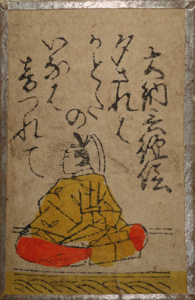 大納言経信
夕されは
かとたの
いなは
音つれて